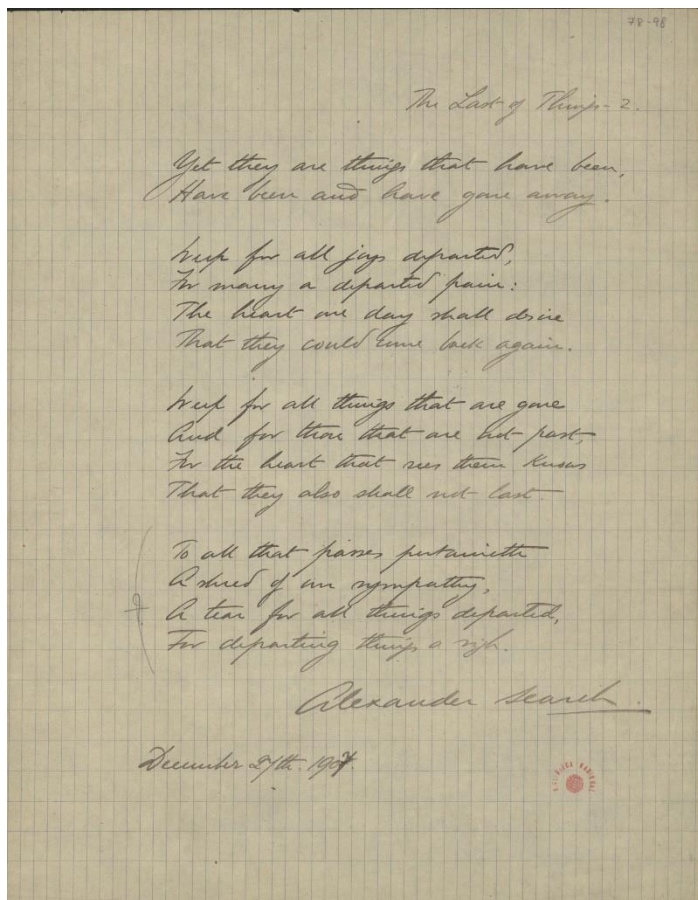 78-98
The Last of Things - 2.
Yet they are things that have been,
Have been and have gone away.
Weep for all joys departed,
For many a departed pain:
The heart one day shall desire
That they could come back again.
Weep for all things that are gone
And for those that are not past,
For the heart that sees them knows
That they also shall not last.
To all that passes pertaineth
A shred of our sympathy,
A tear for all things departed,
For departing things a sigh.
Alexander Search.
December 27th. 1907.